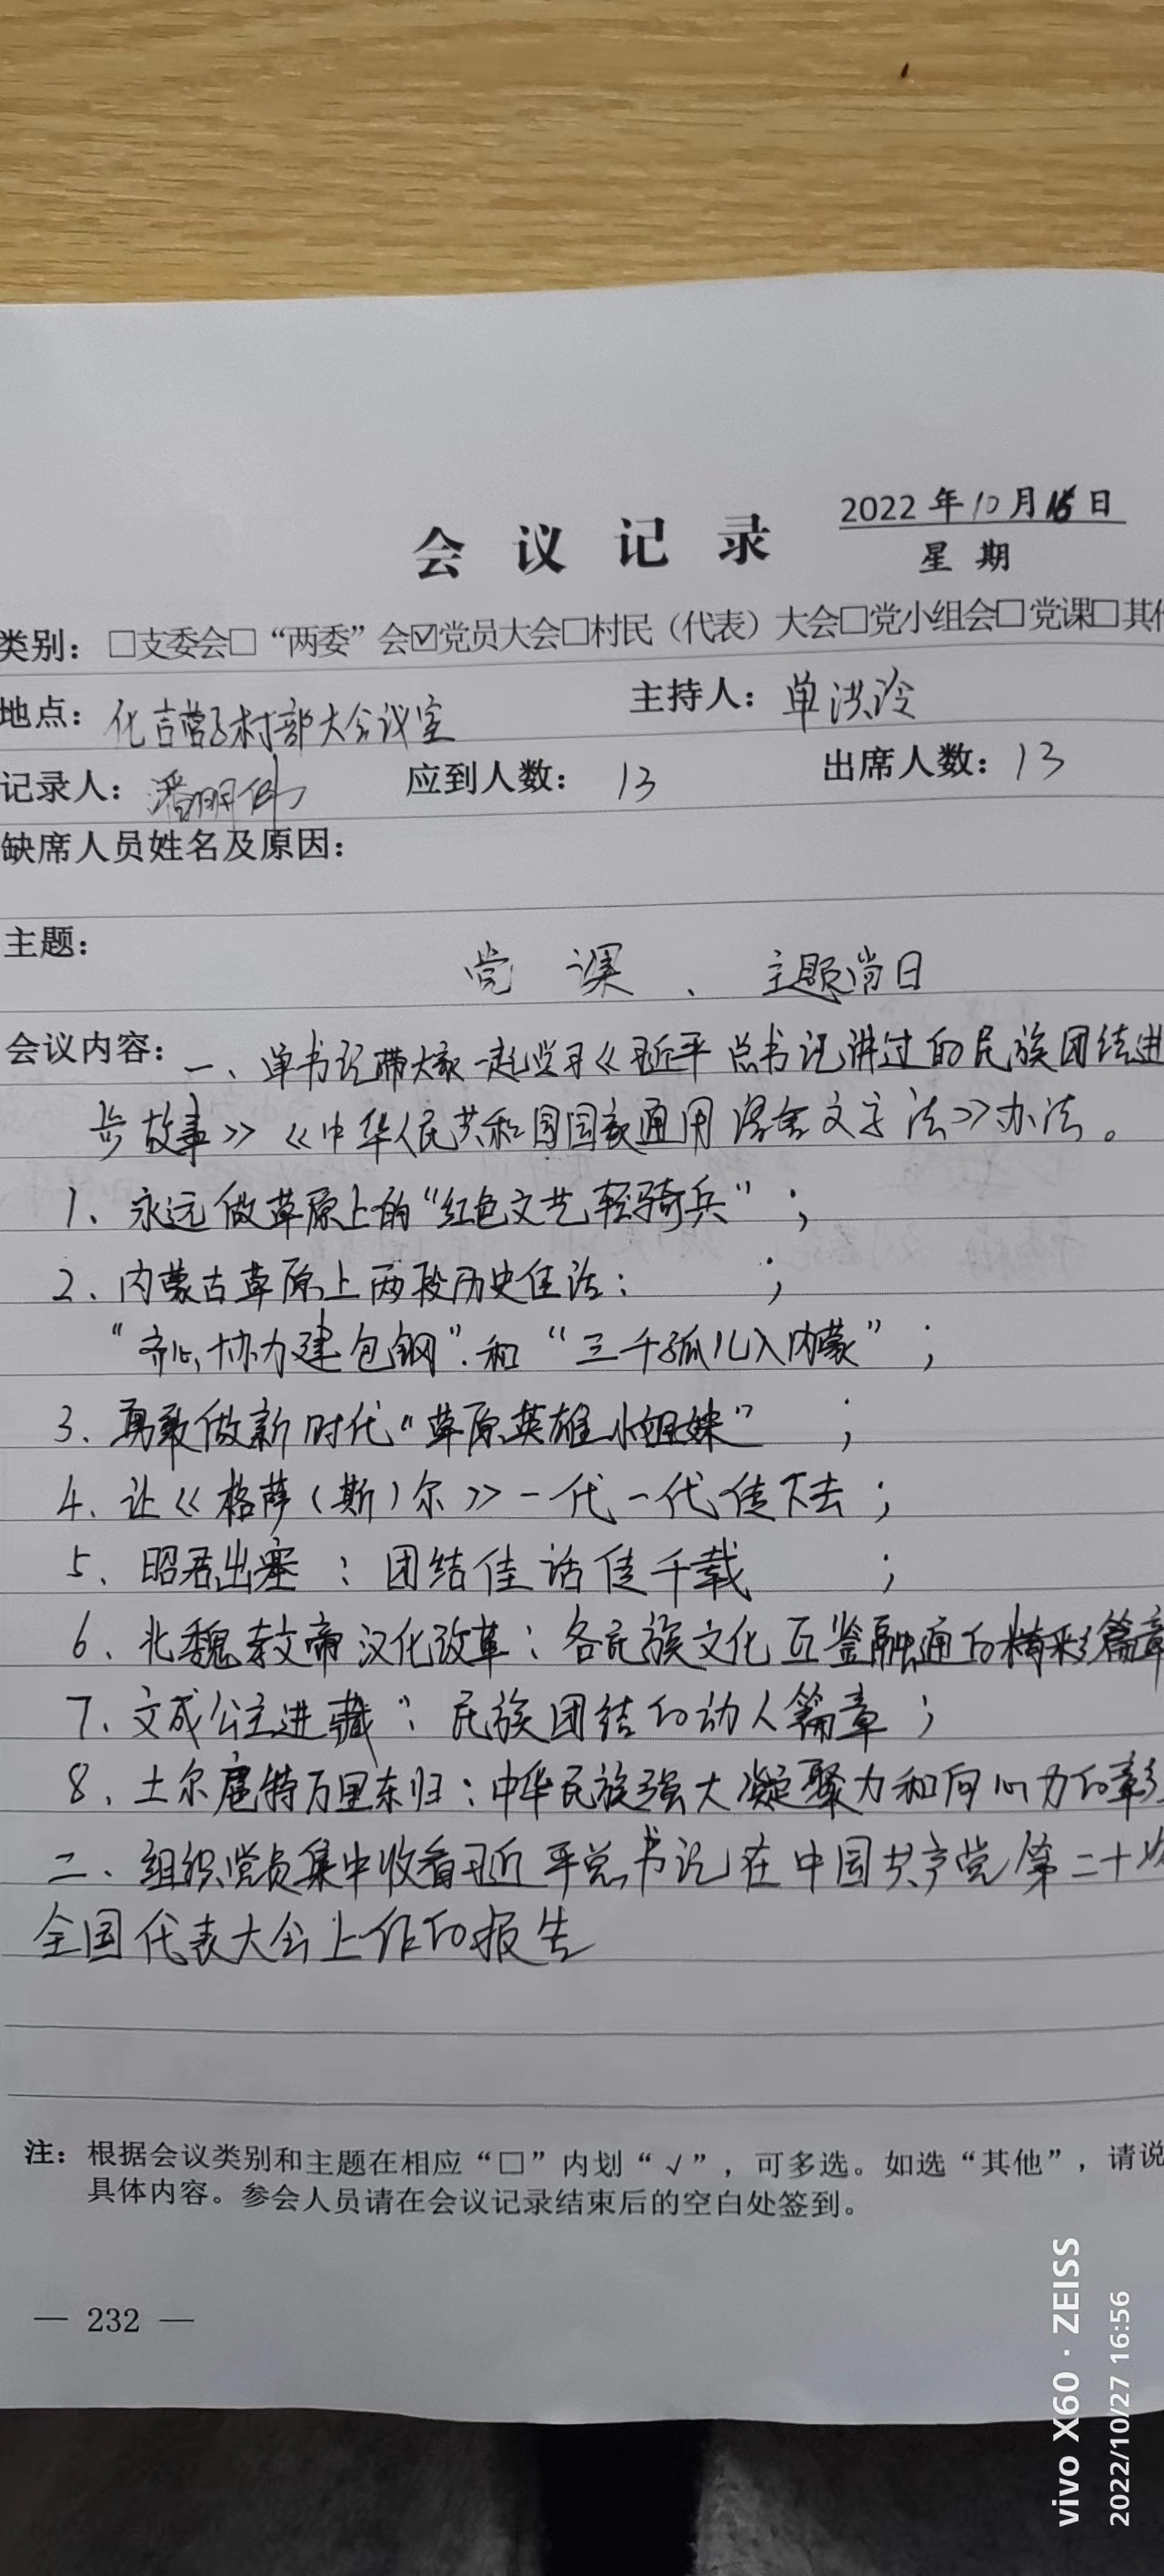 会 议 记 录
2022 年10月15日
星 期
类别：□支委会□“两委”会☑党员大会□村民（代表）大会□党小组会□党课□其他
地点：化吉营子村部大会议室 主持人：单洪玲
记录人：潘明伟 应到人数：13 出席人数：13
缺席人员姓名及原因：
主题： 党 课 、 主题党日
会议内容：一、单书记带大家一起学习《习近平总书记讲过的民族团结进
步故事》《中华人民共和国国家通用语言文字法》办法。
1、永远做草原上的“红色文艺轻骑兵”；
2、内蒙古草原上两段历史佳话： ；
“齐心协力建包钢”.和“三千孤儿入内蒙”；
3、勇敢做新时代“草原英雄小姐妹” ；
4、让《格萨（斯）尔》一代一代传下去；
5、昭君出塞：团结佳话传千载 ；
6、北魏孝文帝汉化改革：各民族文化互鉴融通的精彩篇章
7、文成公主进藏：民族团结的动人篇章；
8、土尔扈特万里东归：中华民族强大凝聚力和向心力的彰
二、组织党员集中收看习近平总书记在中国共产党第二十次
全国代表大会上作的报告
注：根据会议类别和主题在相应“□”内划“√”，可多选。如选“其他”，请说
具体内容。参会人员请在会议记录结束后的空白处签到。
— 232 —
vivo X60 · ZEISS
2022/10/27 16:56